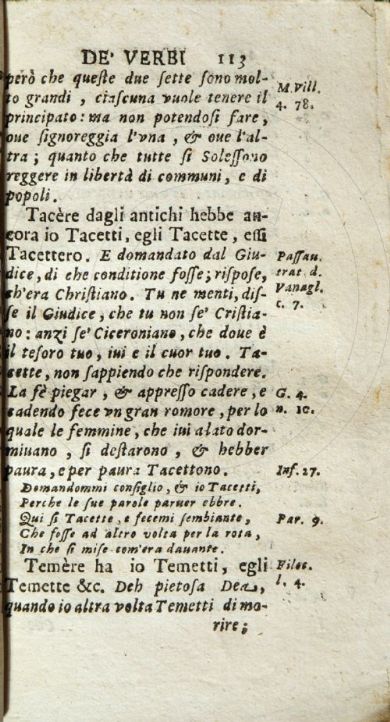 DE' VERBI 113
però che queste due sette sono mol-
to grandi, ciascuna vuole tenere il
principato: ma non potendosi fare,
oue signoreggia l'vna, & oue l'al-
tra; quanto che tutte si Solessono
reggere in libertà di communi, e di
popoli.
M. Vill.
4. 78.
Tacère dagli antichi hebbe an-
cora io Tacetti, egli Tacette, essi
Tacettero. E domandato dal Giu-
dice, di che conditione fosse; rispose,
ch'era Christiano. Tu ne menti, dis-
se il Giudice, che tu non se' Cristia-
no: anzi se' Ciceroniano, che doue è
il tesoro tuo, iui e il cuor tuo. Ta-
cette, non sappiendo che rispondere.
Passau.
trat. d.
Vanagl.
c. 7.
La fè piegar, & appresso cadere, e
cadendo fece vn gran romore, per lo
quale le femmine, che iui alato dor-
miuano, si destarono, & hebber
paura, e per paura Tacettono.
G. 4.
n. 10.
Domandommi consiglio, & io Tacetti,
Perche le sue parole paruer ebbre.
Inf. 27.
Qui si Tacette, e fecemi sembiante,
Che fosse ad altro volta per la rota,
In che si mise com'era dauante.
Par. 9.
Temère ha io Temetti, egli
Temette &c. Deh pietosa Dea,
quando io altra volta Temetti di mo-
Filoc.
l. 4.
rire;